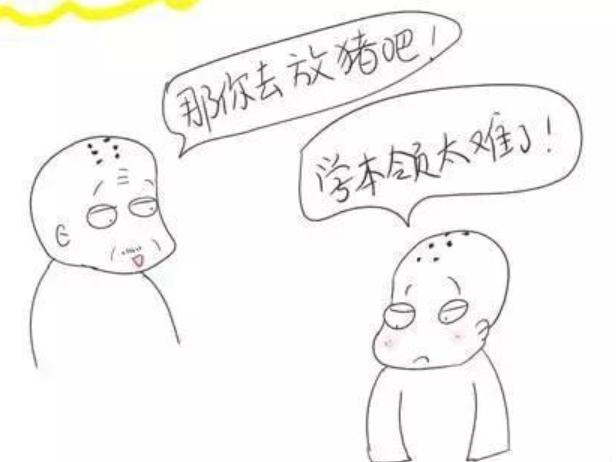 那你去放猪吧！
学本领太难了！